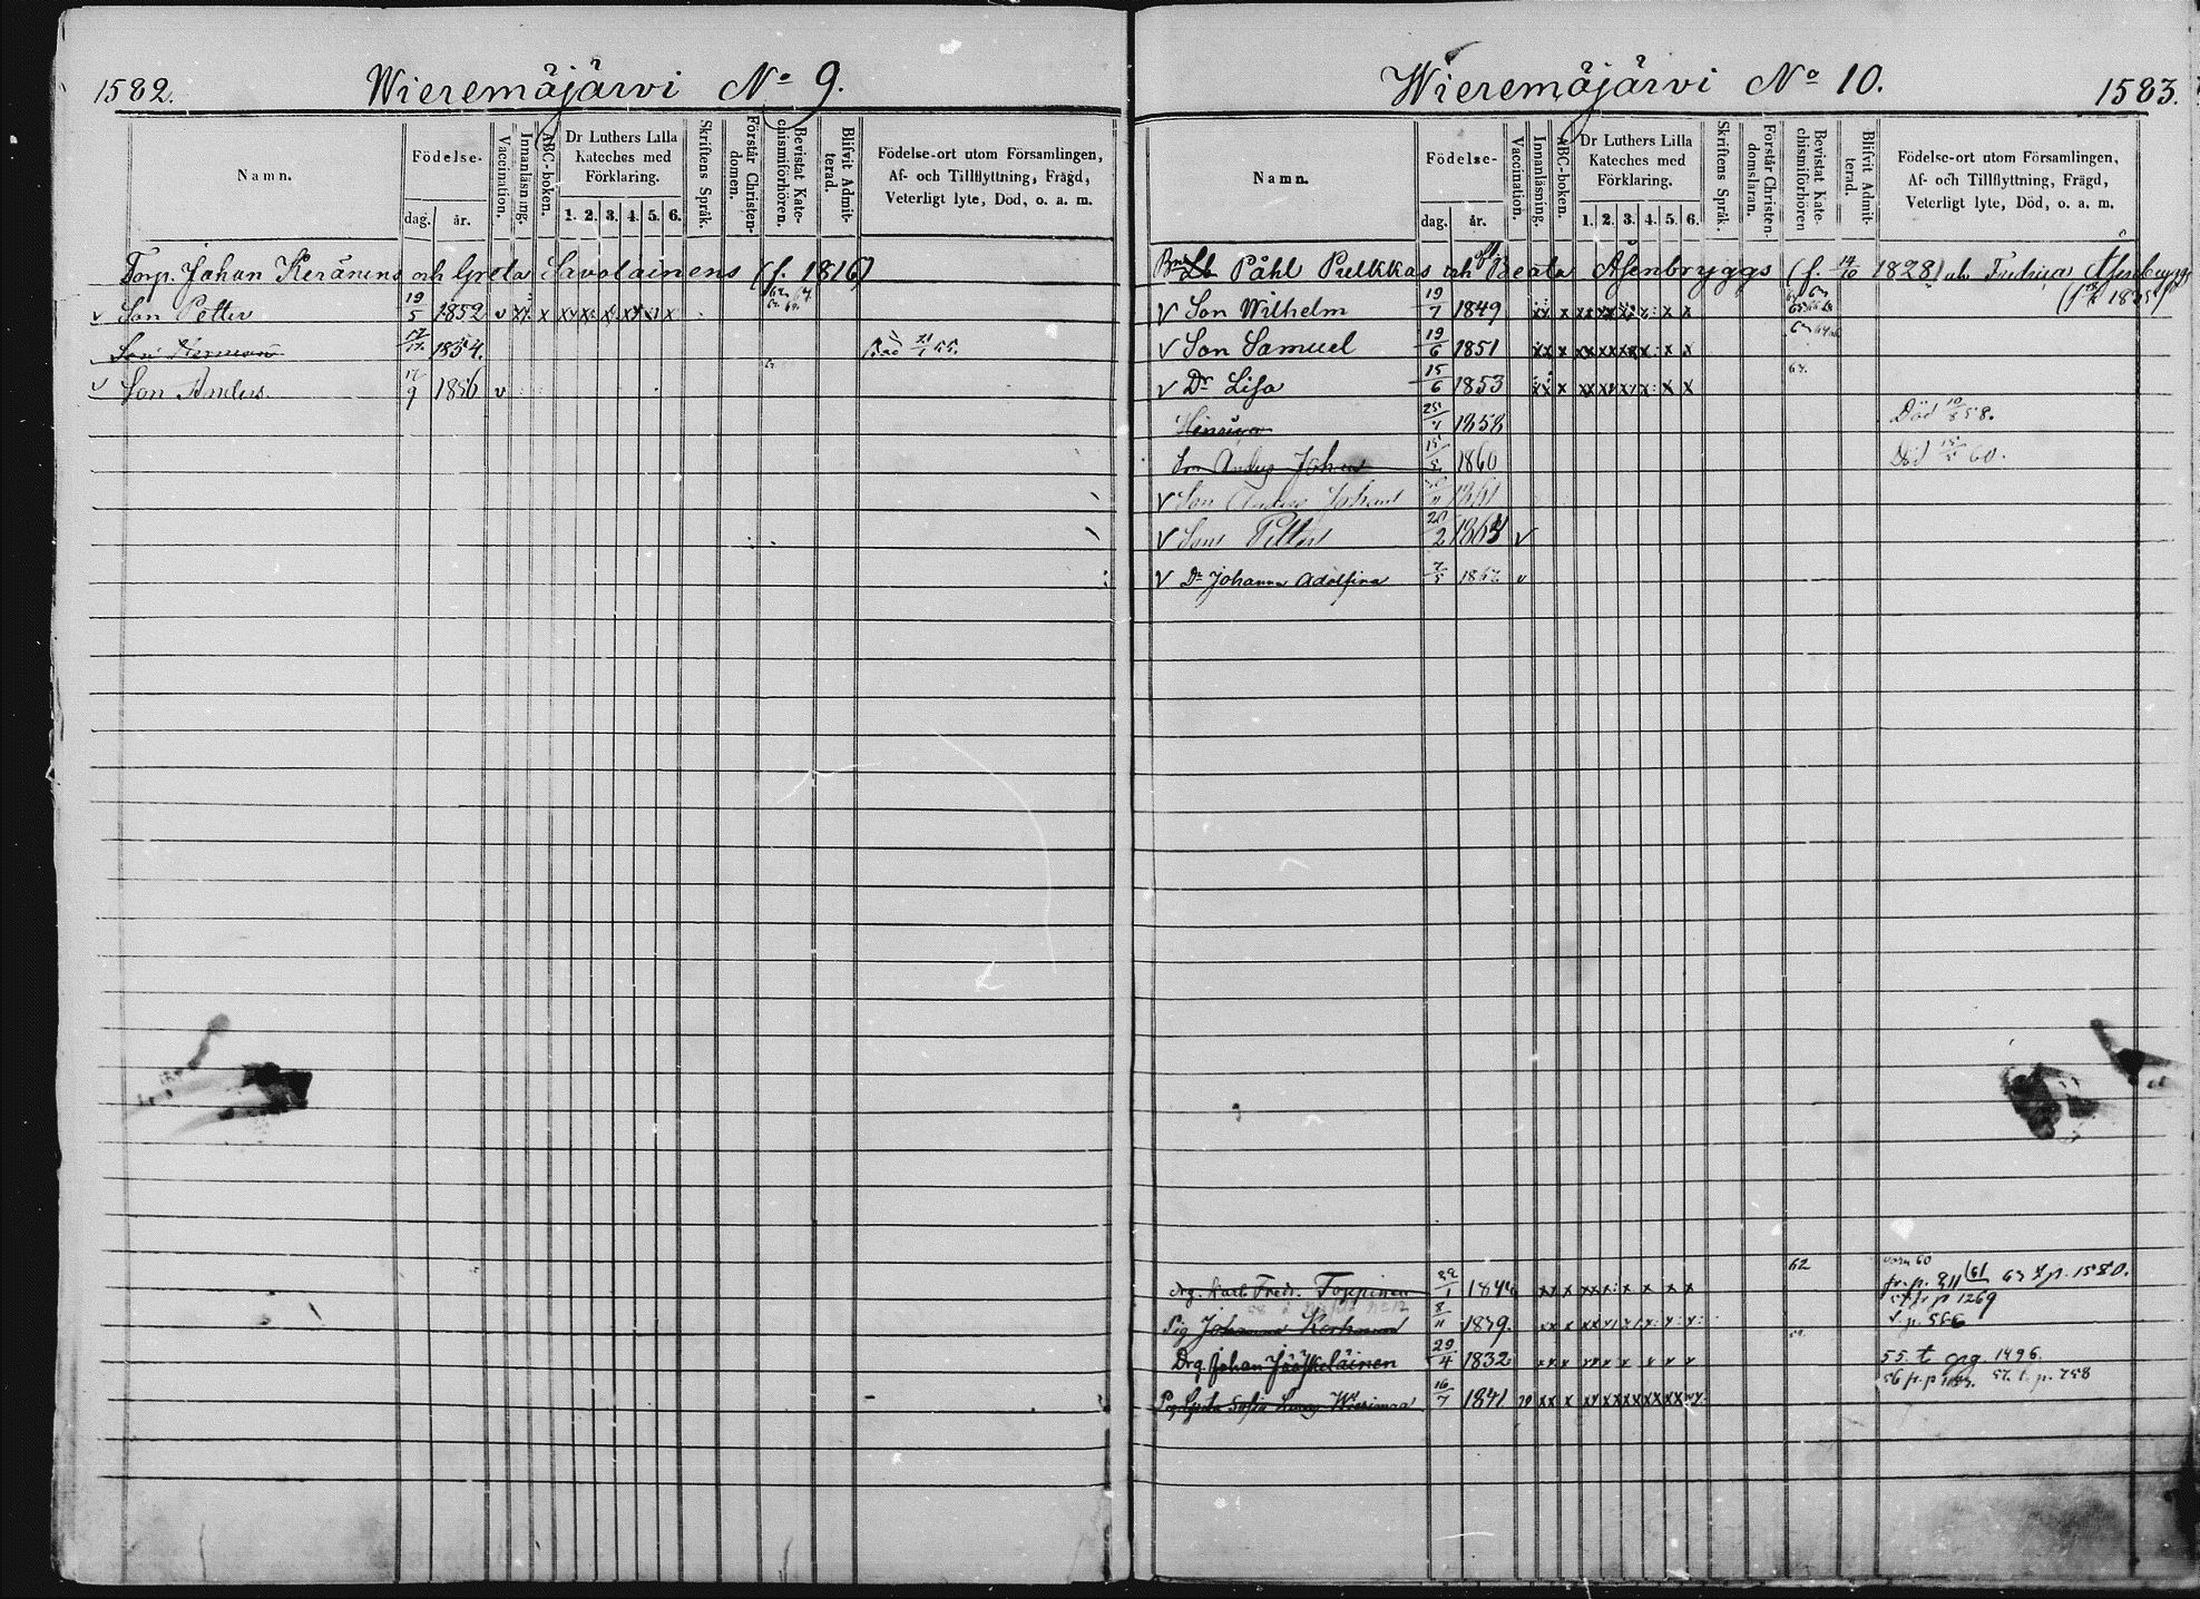 1582. Wieremäjärvi No 9.
Namn. Födelse- dag. år. Vaccination. Innanläsning. ABC-boken. Dr Luthers Lilla Kateches med Förklaring. 1. 2. 3. 4. 5. 6. Skriftens Språk. Förstår Christendomen. Bevistat Katechismiförhören. Blifvit Admitterad. Födelse-ort utom Församlingen, Af- och Tillflyttning, Frägd, Veterligt lyte, Död, o. a. m.
Torp. Johan Keränens och Greta Savolainens (f. 1816)
v Son Petter 19/5 1852 v xx x xx x x xx x x
Son Herman 1854.
v Son Anders. 17/9 1856 v
Wieremäjärvi No 10. 1583.
Namn. Födelse- dag. år. Vaccination. Innanläsning. ABC-boken. Dr Luthers Lilla Kateches med Förklaring. 1. 2. 3. 4. 5. 6. Skriftens Språk. Förstår Christendomsläran. Bevistat Katechismiförhören Blifvit Admitterad. Födelse-ort utom Församlingen, Af- och Tillflyttning, Frägd, Veterligt lyte, Död, o. a. m.
Påhl Pulkkas och Beata Åsenbryggs (f. 14/10 1828)
v Son Wilhelm 19/7 1849 xx x xx xx xx x x x
v Son Samuel 19/6 1851 xx x xx xx xx x x x
v Dr Lisa 15/6 1853 xx x xx xx xx x x x 67.
25/4 1858 Död 10/8 58.
Son Anders Johan 15/5 1860 Död 15/5 60.
v Son Anders Johan 1861
v Son Petter 20/2 1864 v
v Dr Johanna Adolfina 7/5 1867 v
Drg. Karl Fredr. Toppinen 1844 xx x xx x x x x x 62 fr. p. 811 61 63 t. p. 1580.
57 fr. p. 1269
Pig Johanna 8/11 1839. xx x
Drg. Johan Jääskeläinen 29/4 1832 55. t. 1496.
56 fr. p. 57. t. p. 758
Greta Sofia 16/7 1841 xx x